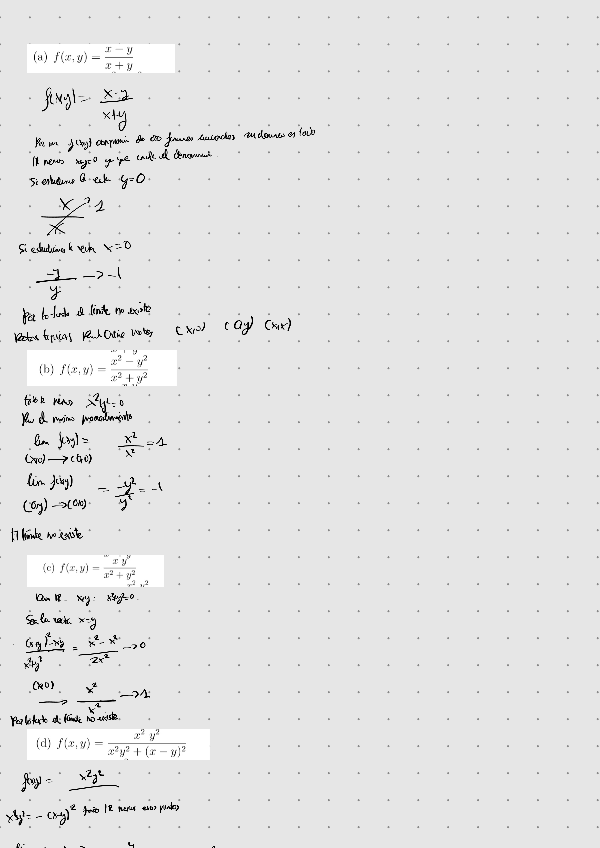 (a) f(x, y) = x − y / x + y
f(x,y) = x-y / x+y
f(x,y) de dos funciones es todo
IR menos x+y=0 ya que anula el
Si estudiamos la recta y=0.
x / x → 1
Si estudiamos la recta x=0
-y / y → -1
Por lo tanto el límite no existe
Rectas típicas (x,0) (0,y) (x,x)
(b) f(x, y) = x² − y² / x² + y²
todo IR menos x²y²=0
Por el mismo procedimiento
lim f(x,y) = x² / x² = 1
(x,0) → (0,0)
lim f(x,y) = -y² / y² = -1
(0,y) → (0,0)
El límite no existe
(c) f(x, y) = x y / x² + y²
IR x²+y²=0.
Sea la recta x=y
(x+y)² - xy / x²+y² = x² - x² / 2x² → 0
(x,0) → x² / x² → 1
Por lo tanto el límite no existe.
(d) f(x, y) = x² y² / x²y² + (x − y)²
f(x,y) = x²y²
x²y² = -(x-y)² todo IR menos esos puntos